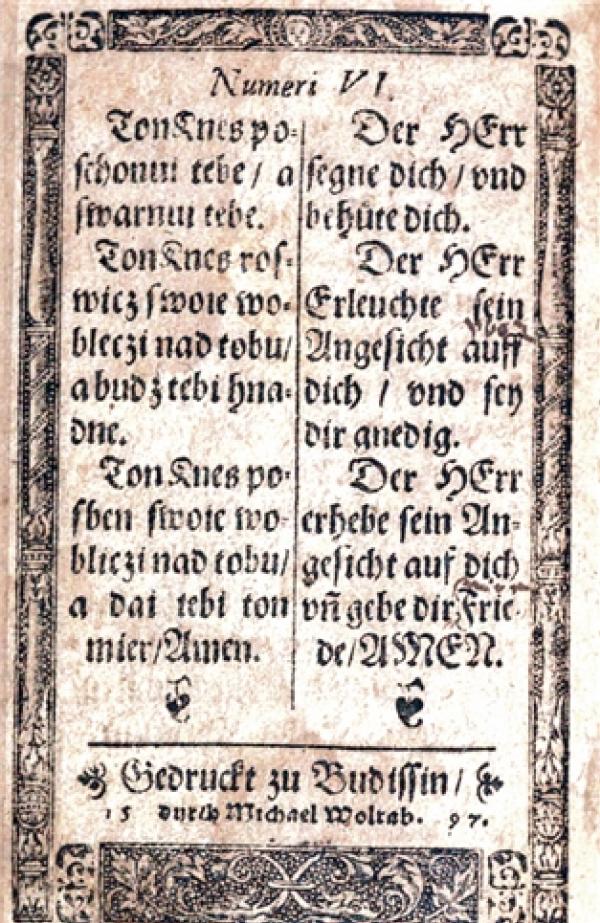 Numeri VI.
Ton Knes po-
schonuu tebe / a
swarnuu tebe.
Ton Knes ros-
wicz swoie wo-
bleczi nad tobu/
a budz tebi hna-
dne.
Ton Knes po-
sben swoie wo-
bliczi nad tobu/
a dai tebi ton
mier/Amen.
Der HErr
segne dich / vnd
behüte dich.
Der HErr
Erleuchte sein
Angesicht auff
dich / vnd sey
dir gnedig.
Der HErr
erhebe sein An-
gesicht auf dich
vñ gebe dir Frie-
de/AMEN.
Gedruckt zu Budissin/
15 durch Michael Wolrab. 97.